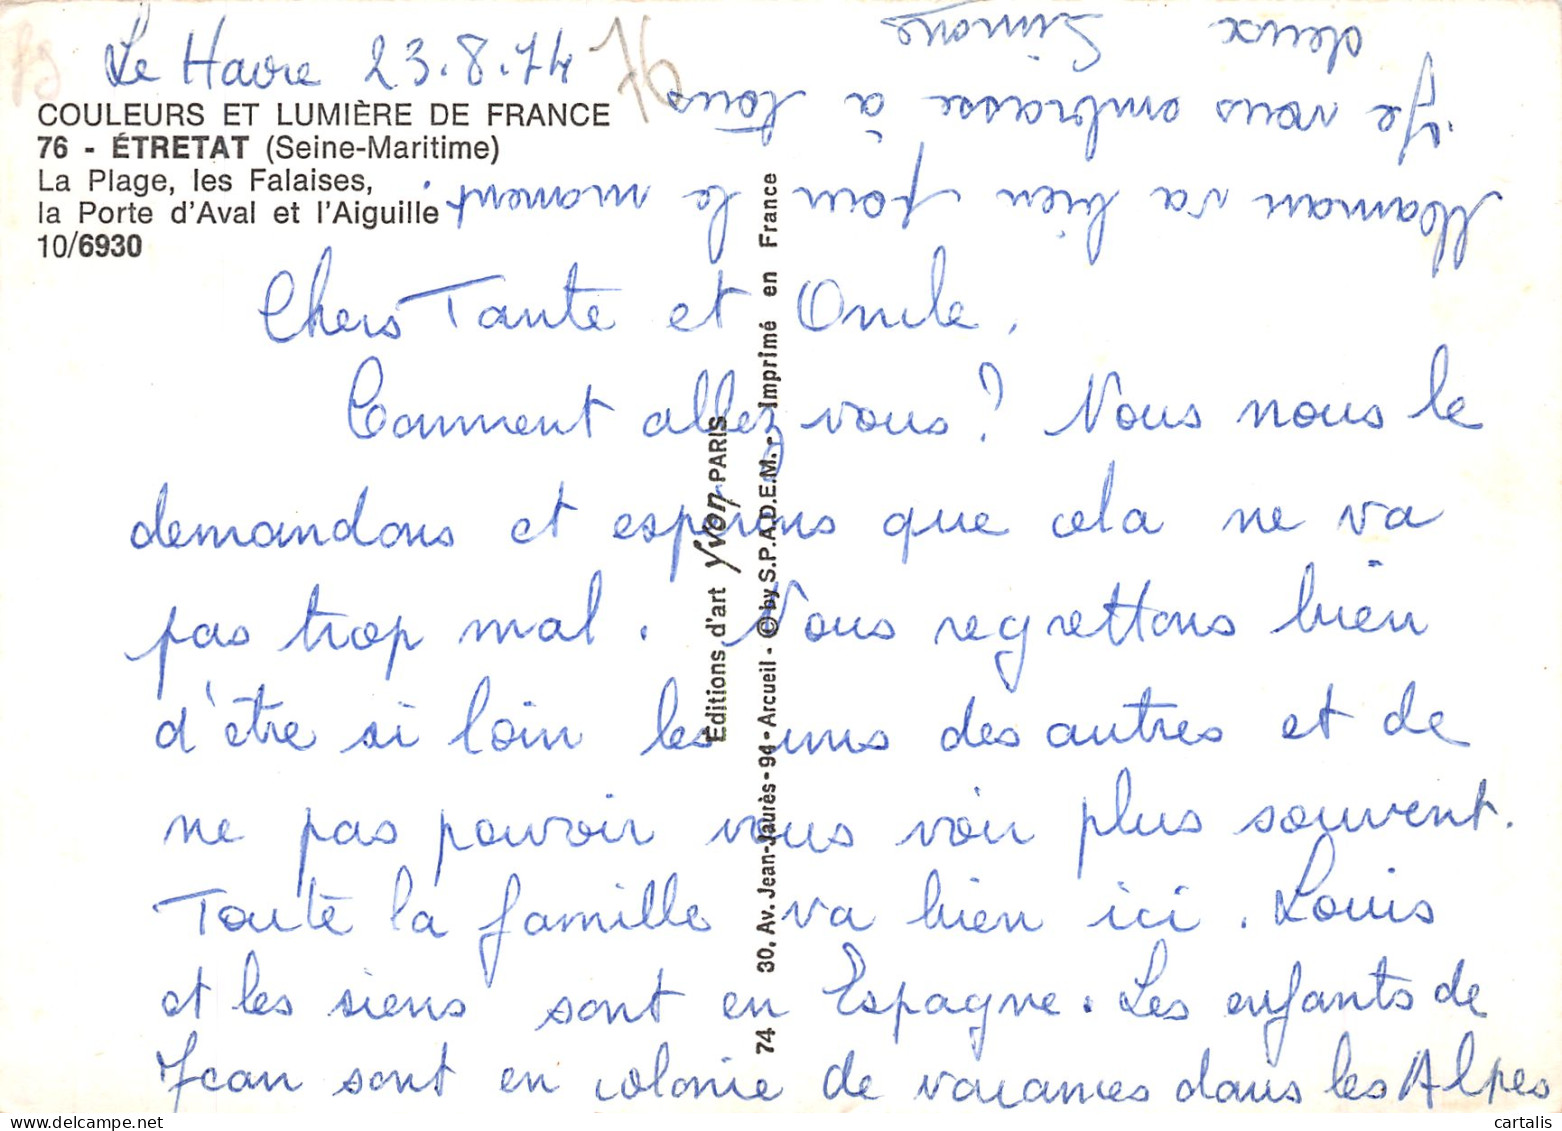 Le Havre 23.8.74
76
COULEURS ET LUMIÈRE DE FRANCE
76 - ÉTRETAT (Seine-Maritime)
La Plage, les Falaises,
la Porte d'Aval et l'Aiguille
10/6930
Chers Tante et Oncle,
Comment allez vous? Nous nous le
demandons et espérons que cela ne va
pas trop mal. Nous regrettons bien
d'être si loin les uns des autres et de
ne pas pouvoir vous voir plus souvent.
Toute la famille va bien ici. Louis
et les siens sont en Espagne. Les enfants de
Jean sont en colonie de vacances dans les Alpes
Maman va bien pour le moment.
Je vous embrasse à tous
deux Simone
Éditions d'art Yvon PARIS
74 30, Av. Jean-Jaurès - 94 - Arcueil - © by S.P.A.D.E.M. - Imprimé en France
cartalis